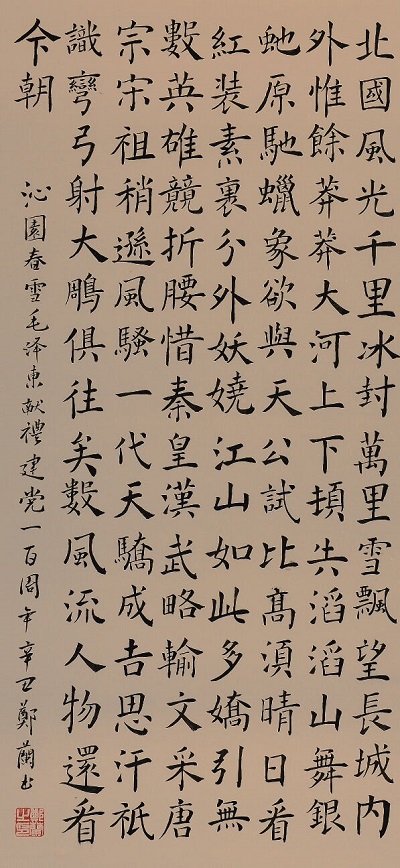 北國風光千里冰封萬里雪飄望長城内
外惟餘莽莽大河上下頓失滔滔山舞銀
虵原馳蠟象欲與天公試比髙須晴日看
紅装素裏分外妖嬈江山如此多嬌引無
數英雄競折腰惜秦皇漢武略輸文采唐
宗宋祖稍遜風騷一代天驕成吉思汗祇
識彎弓射大鵰俱往矣數風流人物還看
今朝
沁園春雪毛泽東献禮建党一百周年辛丑鄭蘭书